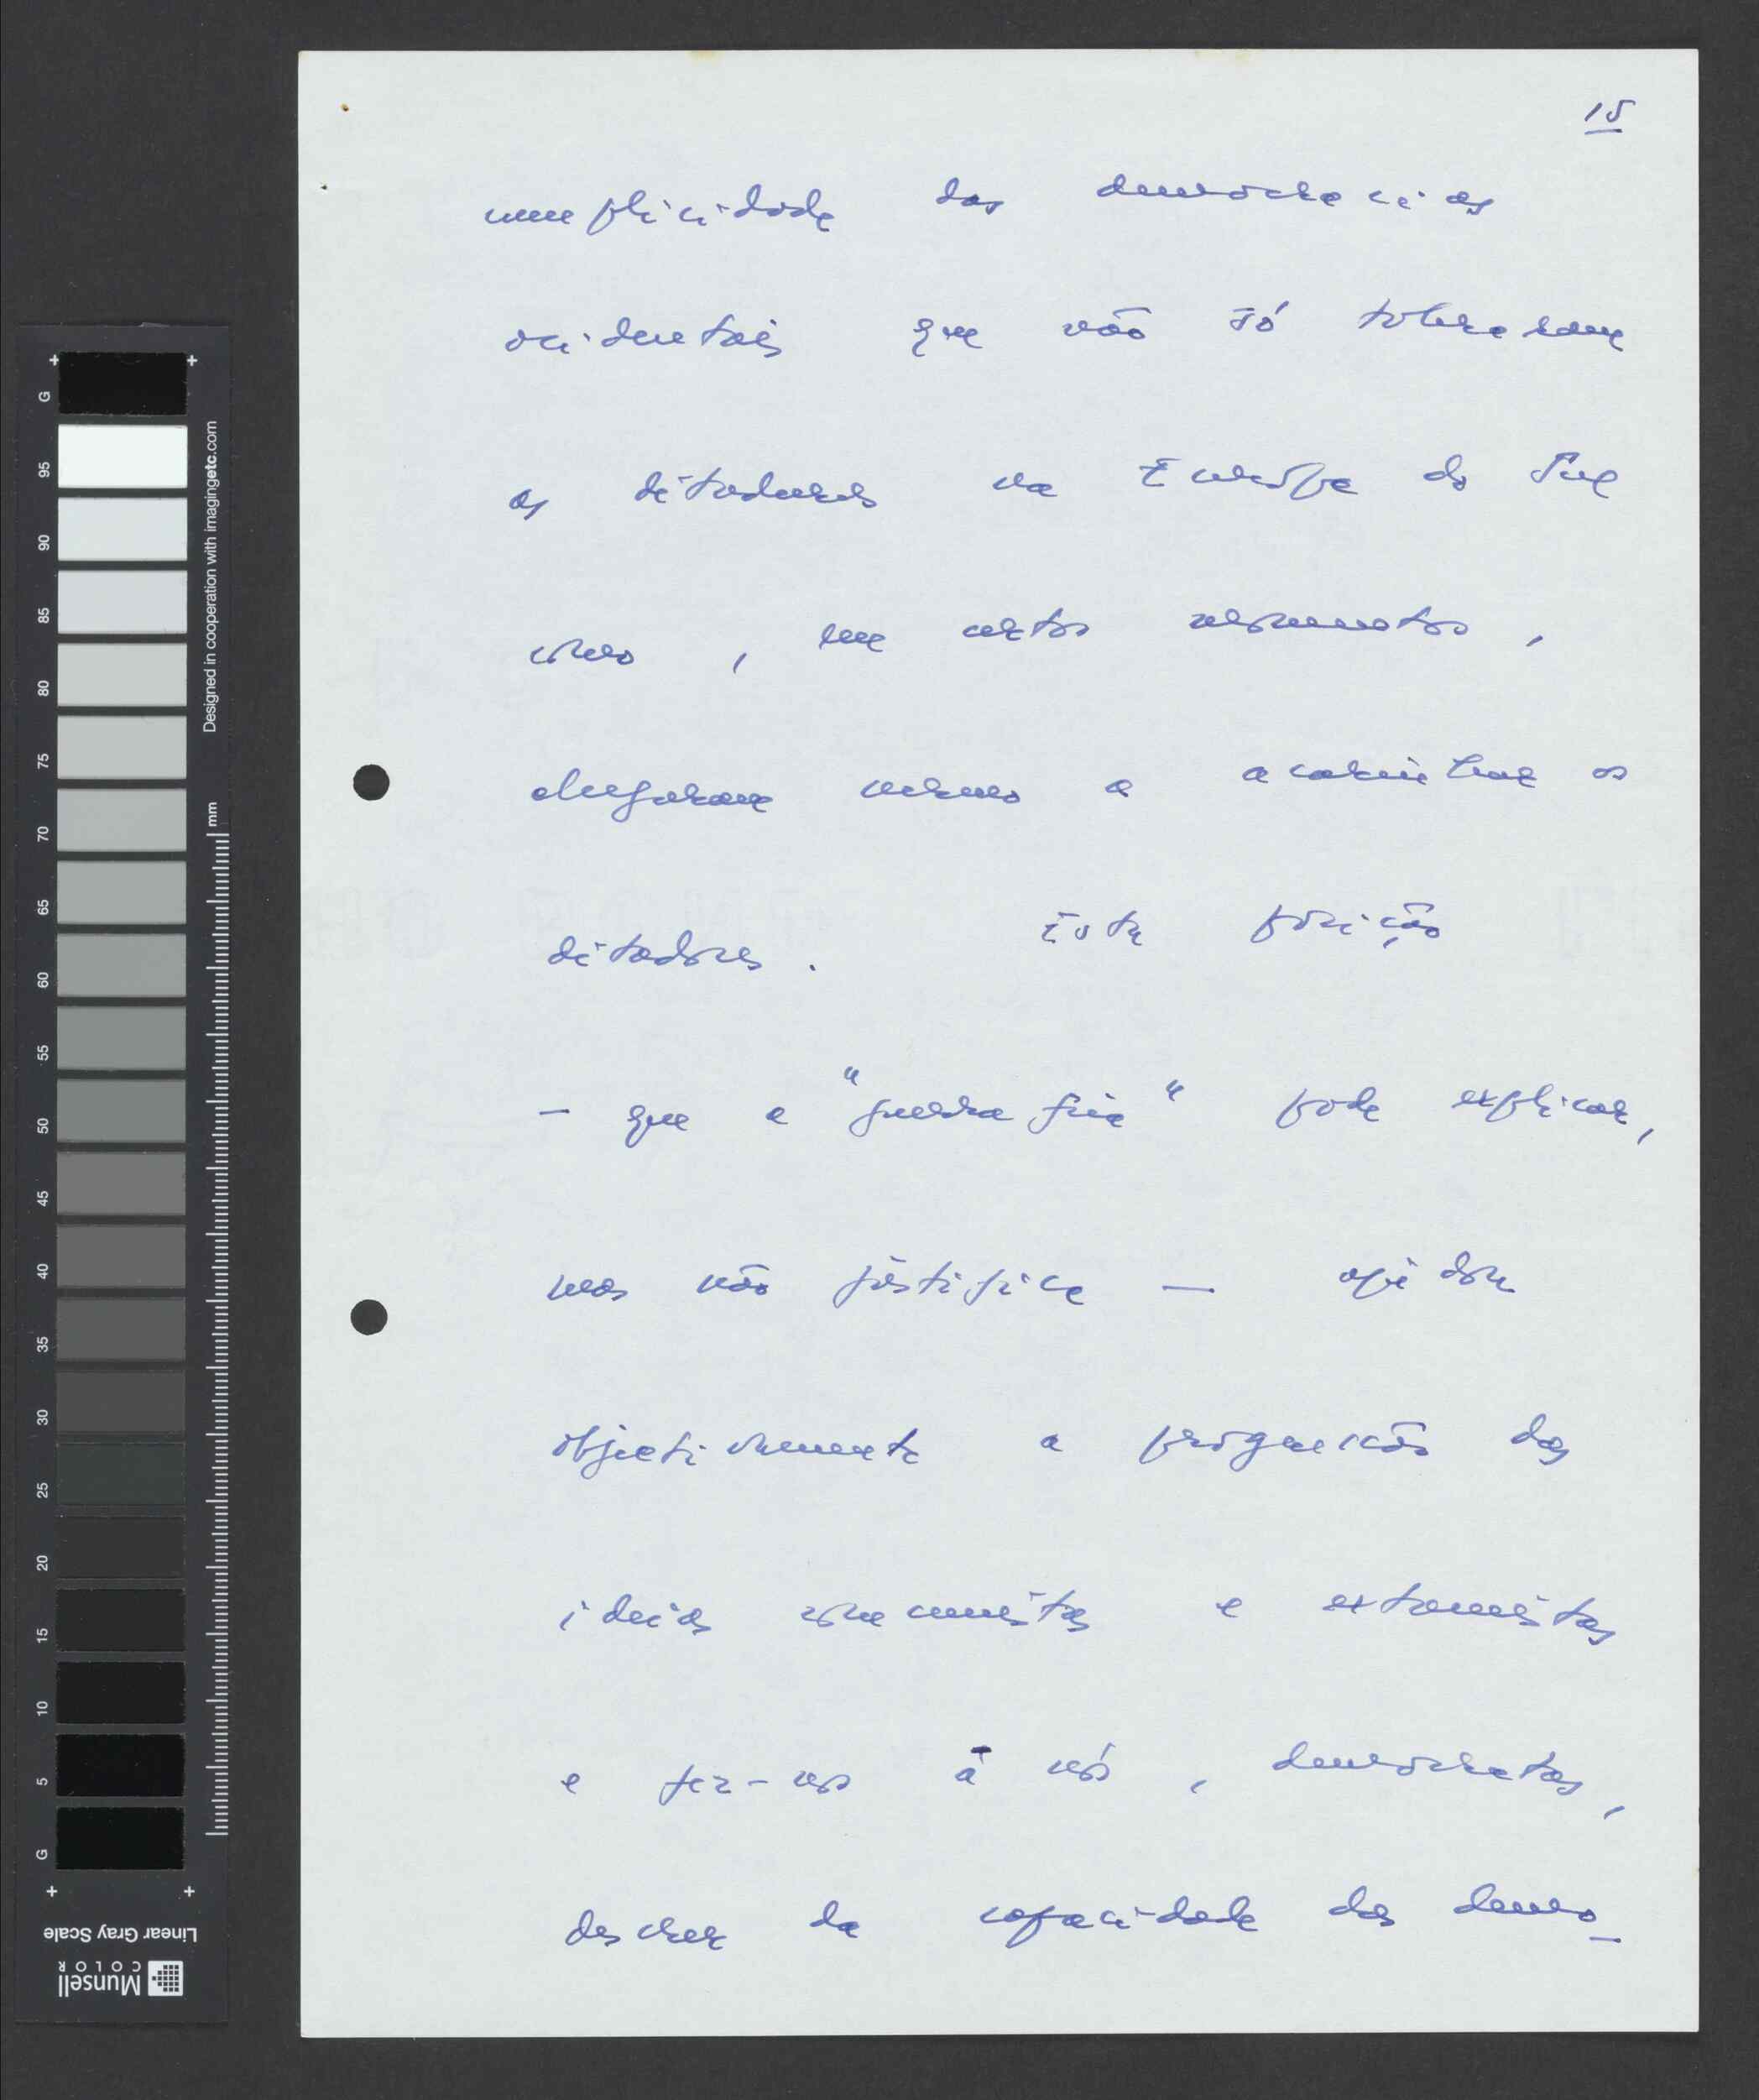 15
cumplicidade das democracias
ocidentais que não só toleraram
as ditaduras na Europa do Sul
como, em certos momentos,
chegaram mesmo a acarinhar os
ditadores. Esta posição
- que a "guerra fria" pode explicar,
mas não justifica — ajudou
objectivamente a progressão das
ideias comunistas e extremistas
e fez-nos a nós, democratas,
descrer da capacidade das demo-
G
95
90
85
80
75
70
65
60
55
50
45
40
35
30
25
20
15
10
5
G
mm
Designed in cooperation with imagingetc.com
Linear Gray Scale
Munsell
COLOR